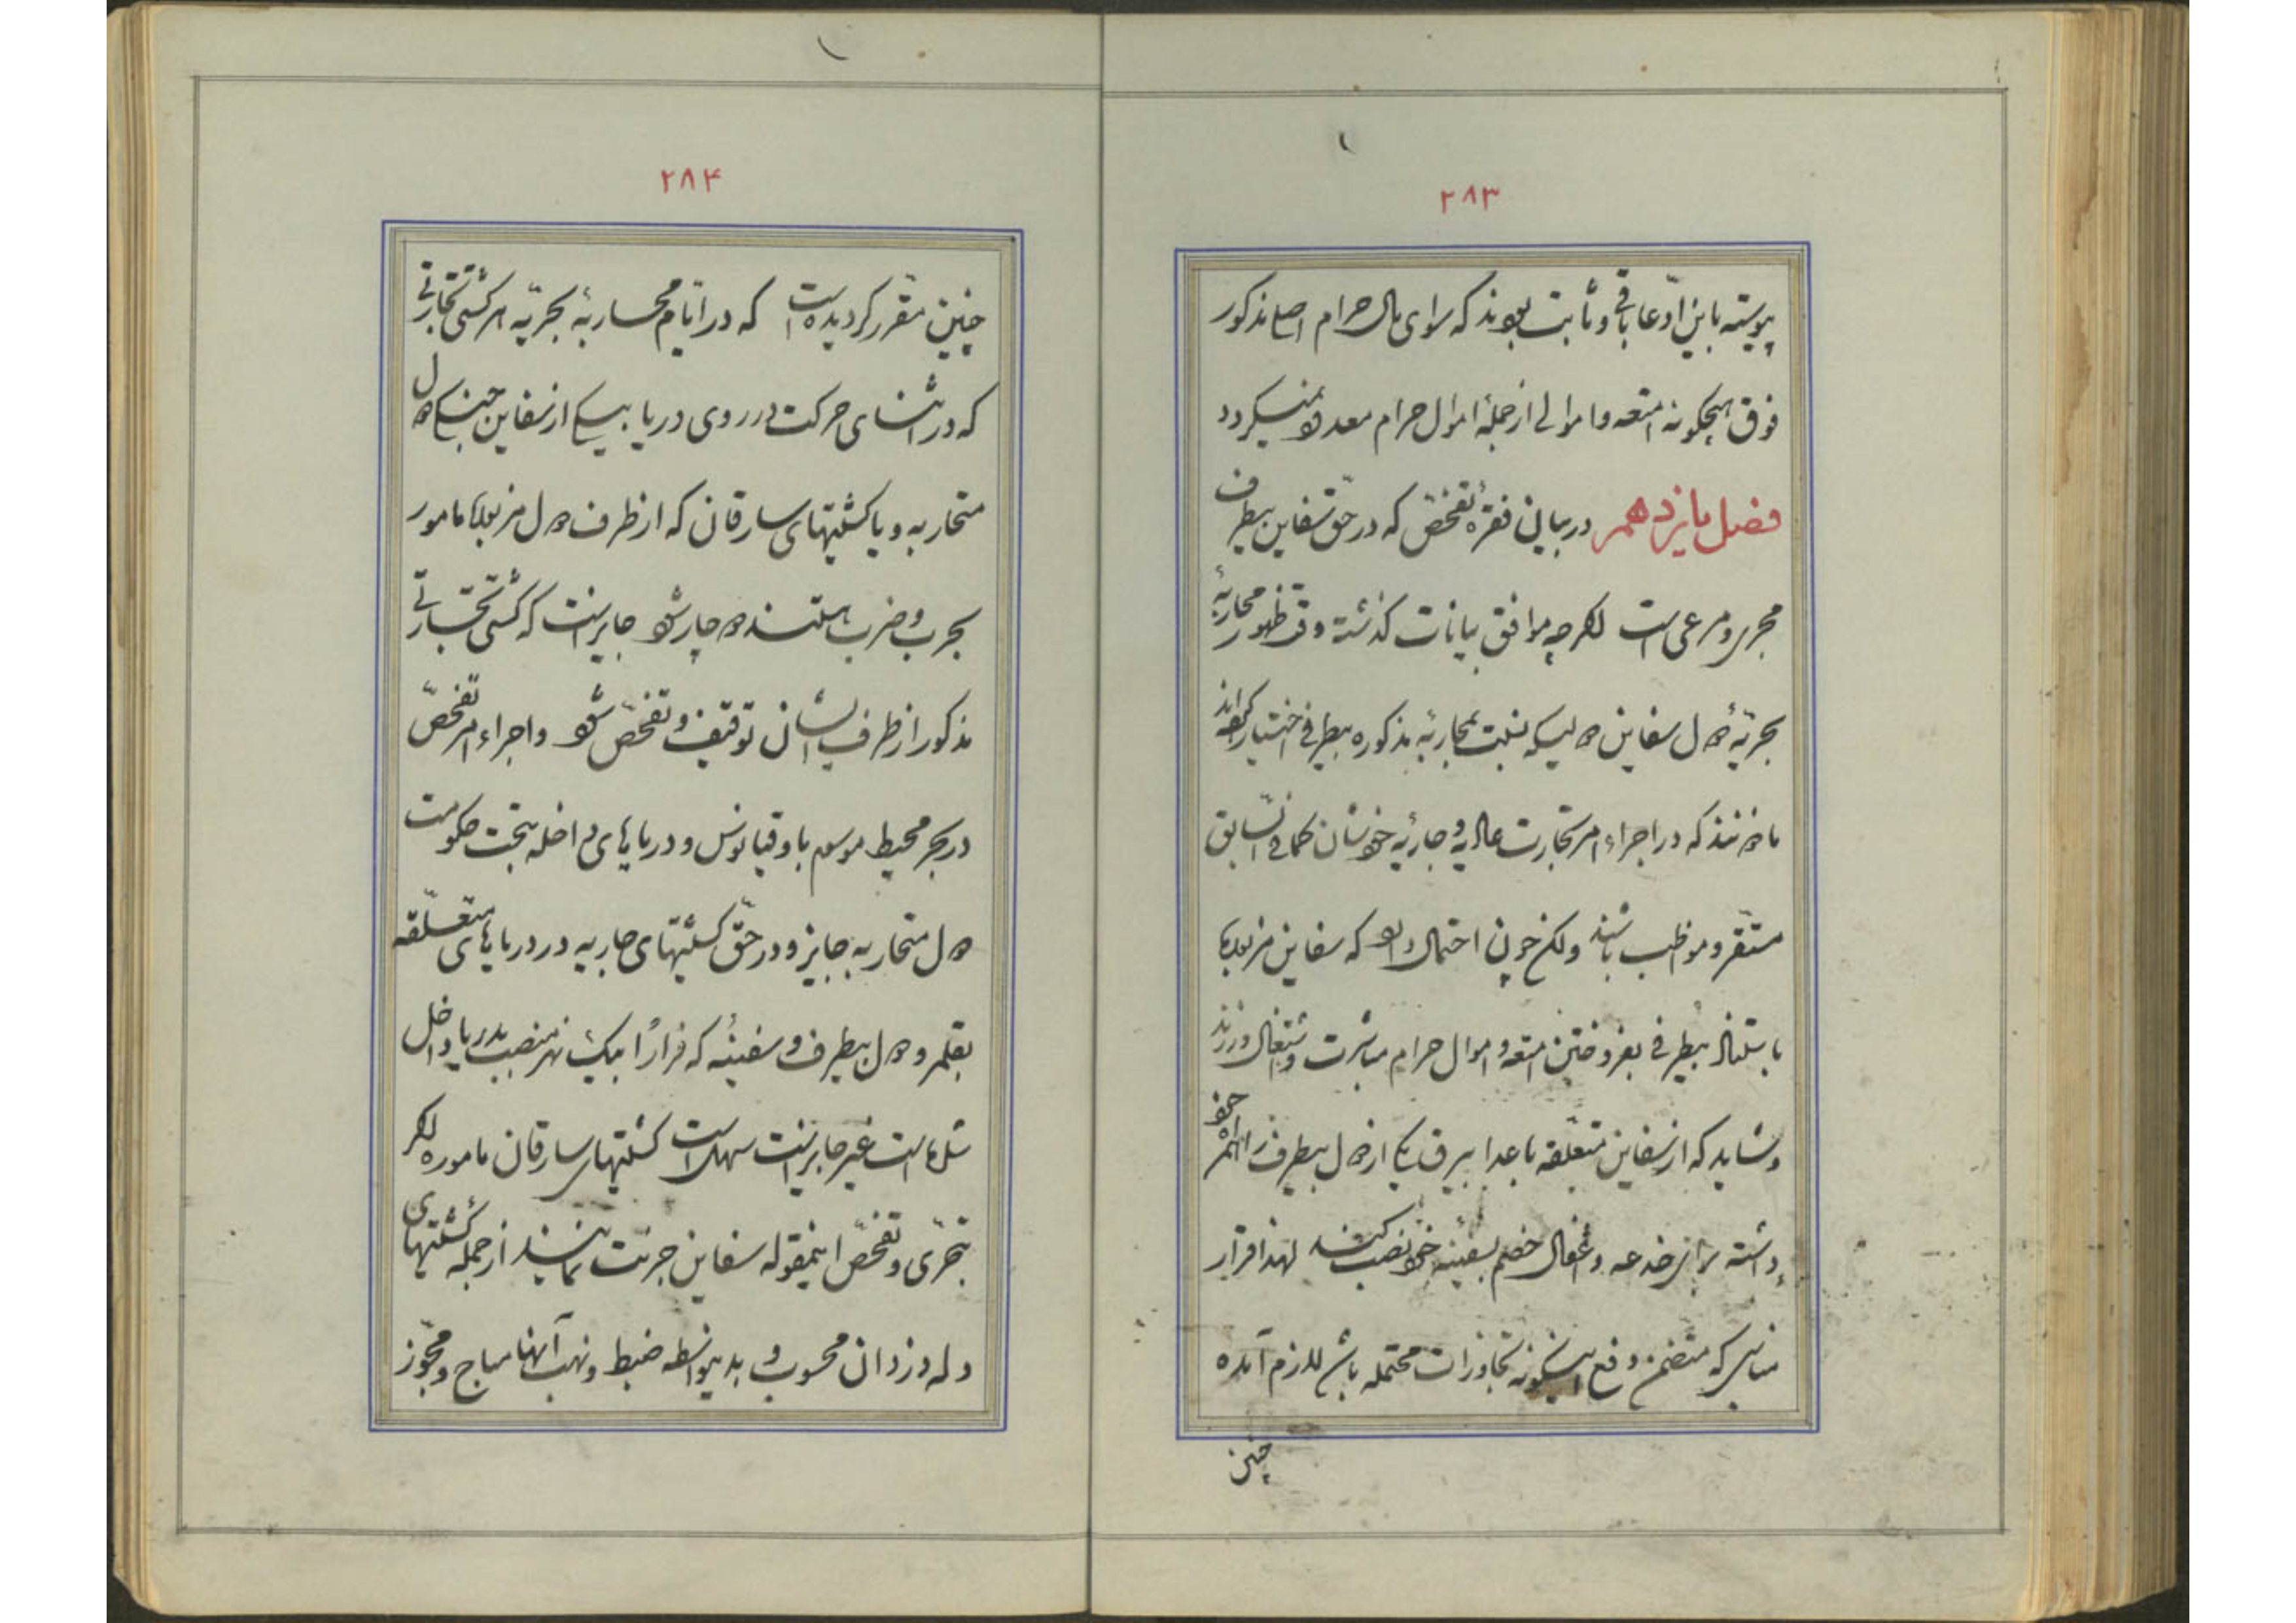 ۲۸۳
پیوسته باین ادّعا باقی و ثابت بودند که سوای مال حرام اصلی مذکور
فوق هیچکونه امتعه و اموالی از جملهٔ اموال حرام معدود نمیکردد
فصل پانزدهم در بیان فقرهٔ تفحّص که در حقّ سفاین بیطرف
مجری و مرعی است اکرچه موافق بیانات کذشته وقت ظهور محاربهٔ
بحریّهٔ دول سفاین دولیکه نسبت بمحاربهٔ مذکوره بیطرفی اختیار کرده‌اند
ماذونند که در اجراء امر تجارت عالیه و جاریهٔ خودشان کما فی السّابق
مستقر و مواظب باشند ولکن چون احتمال دارد که سفاین مزبوره
باستناد بیطرفی بفروختن امتعه و اموال حرام مباشرت و اشتغال ورزند
و شاید که از سفاین متعلّقه باعدا بیرق یکی از دول بیطرف را همراه خود
داشته برای خدعه و اغفال خصم بسفینهٔ خود نصب کنند لهذا قرار
مدار که متضمن دفع اینکونه تجاوزات محتمله باشد لازم آمده
چنین
۲۸۴
چنین مقرر کردیده است که در ایّام محاربهٔ بحریّه هر کشتی تجارتی
که در اثنای حرکت در روی دریا بیکی از سفاین جنکی دول
متحاربه و یا کشتیهای سارقان که از طرف دول مزبوره مامور
بحرب و ضرب هستند دوچار شود جایز است که کشتی تجارتی
مذکور از طرف ایشان توقیف و تفحّص شود و اجراء امر تفحّص
در بحر محیط موسوم باوقیانوس و دریاهای داخله بتحت حکومت
دول متحاربه جایز و در حقّ کشتیهای جاریه در دریاهای متعلّقه
بقلمرو دول بیطرف و سفینهٔ که فراراً بیک نهر منصب بدریا داخل
شده است غیر جایز است سهل است کشتیهای سارقان ماموره اکر
بتحرّی و تفحّص اینمقوله سفاین جرئت نمایند از جمله کشتیهای
دله دزدان محسوب و بدینواسطه ضبط و نهب آنها مباح و مجوّز